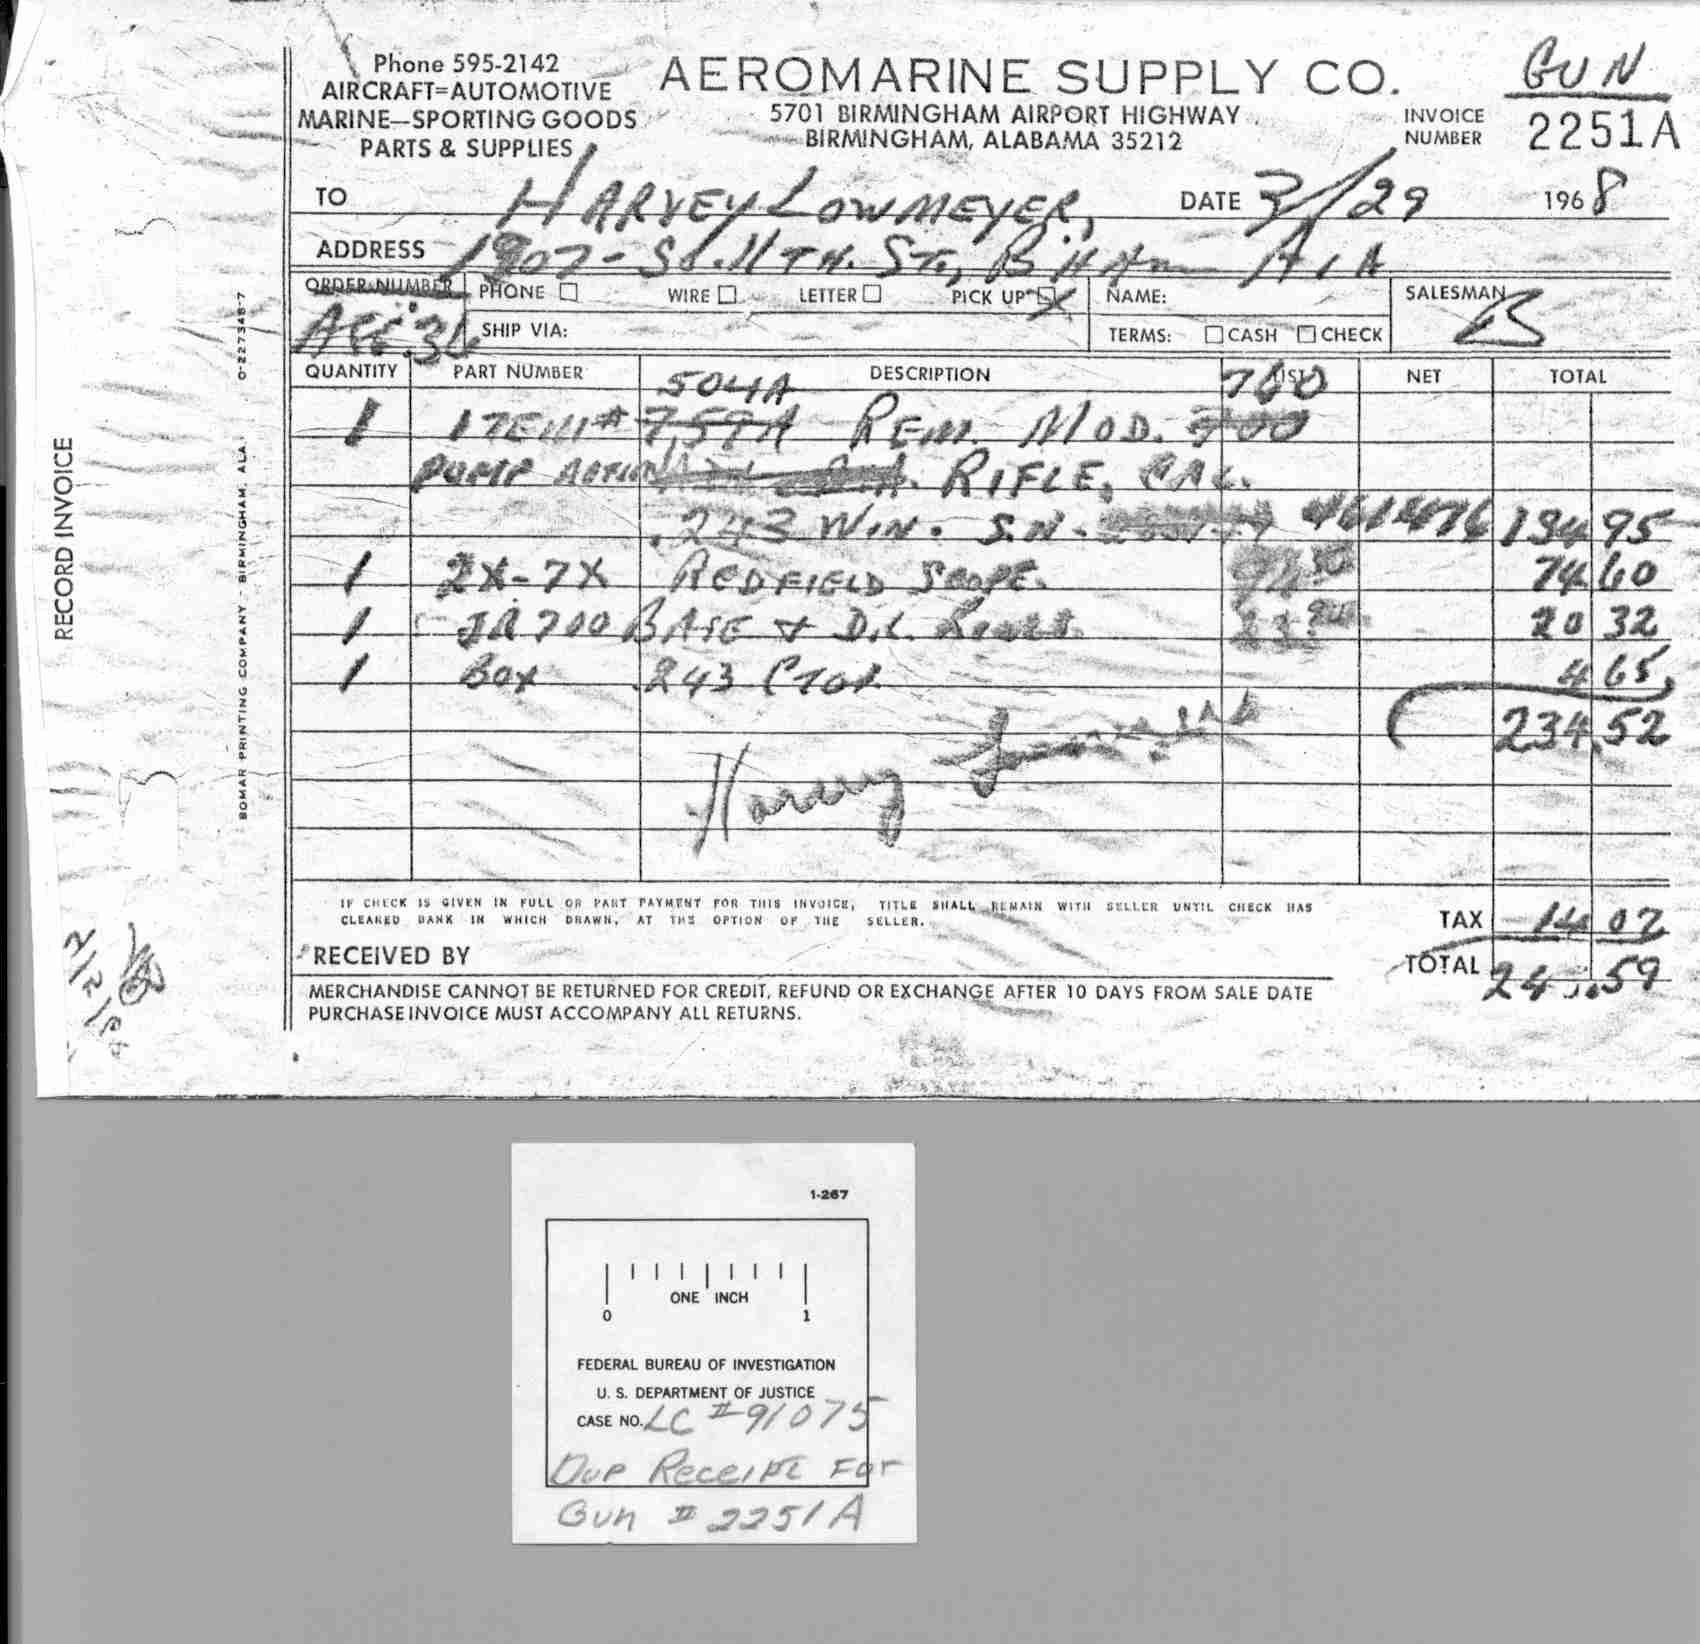 Phone 595-2142
AIRCRAFT=AUTOMOTIVE
MARINE—SPORTING GOODS
PARTS & SUPPLIES
AEROMARINE SUPPLY CO.
5701 BIRMINGHAM AIRPORT HIGHWAY
BIRMINGHAM, ALABAMA 35212
GUN
INVOICE NUMBER 2251A
TO HARVEY LOWMEYER, DATE 3/29 1968
ADDRESS 1907-So. 11TH. ST., B'HAm ALA
ORDER NUMBER PHONE WIRE LETTER PICK UP NAME: SALESMAN
Age: 36 SHIP VIA: TERMS: CASH CHECK
QUANTITY PART NUMBER DESCRIPTION LIST NET TOTAL
504A 760
1 ITEM# 759A REM. MOD. 700
PUMP ACTION RIFLE, CAL.
.243 WIN. S.N- 461476 134 95
1 2X-7X REDFIELD SCOPE. 74 60
1 JR 700 BASE + 20 32
1 Box .243 4 65
234.52
Harvey
IF CHECK IS GIVEN IN FULL OR PART PAYMENT FOR THIS INVOICE, TITLE SHALL REMAIN WITH SELLER UNTIL CHECK HAS
CLEARED BANK IN WHICH DRAWN, AT THE OPTION OF THE SELLER.
TAX 14 07
RECEIVED BY
TOTAL 59
MERCHANDISE CANNOT BE RETURNED FOR CREDIT, REFUND OR EXCHANGE AFTER 10 DAYS FROM SALE DATE
PURCHASE INVOICE MUST ACCOMPANY ALL RETURNS.
RECORD INVOICE
BOMAR PRINTING COMPANY - BIRMINGHAM, ALA. 0-227348-7
1-267
ONE INCH
0 1
FEDERAL BUREAU OF INVESTIGATION
U. S. DEPARTMENT OF JUSTICE
CASE NO. LC #91075
Dup Receipt For
Gun # 2251A